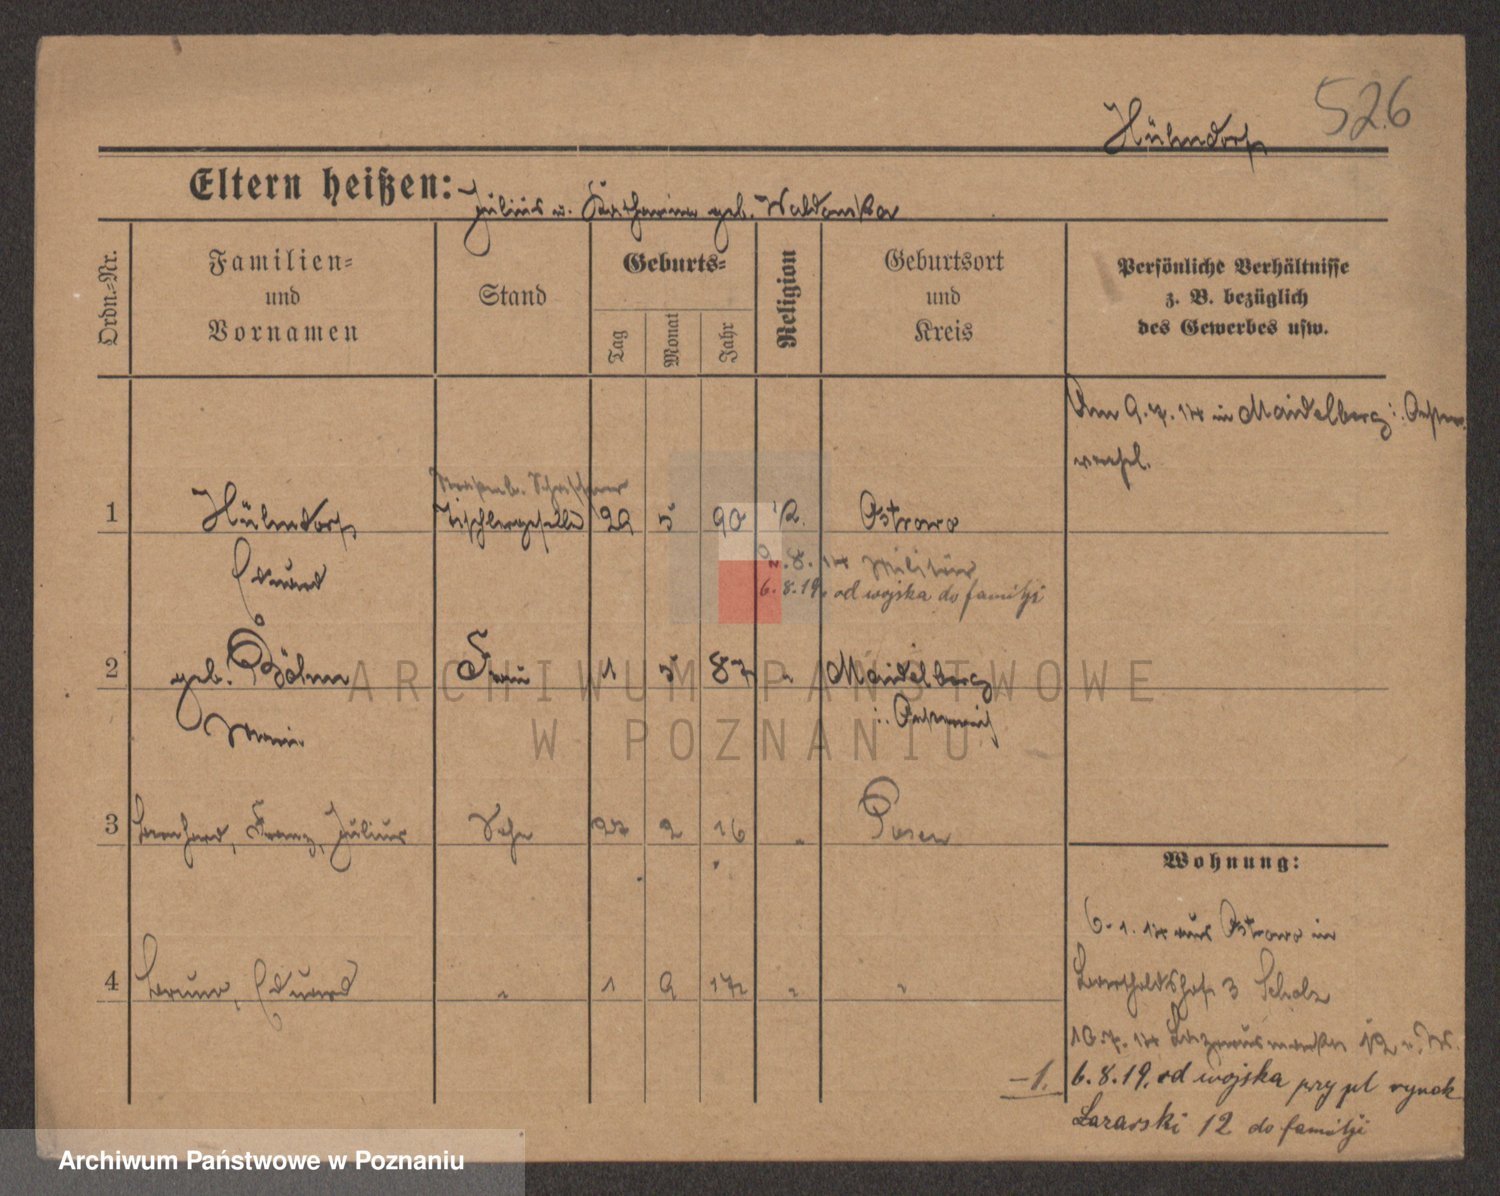 526
Hülmdorf
Eltern heißen: Julius u. Katharina geb. Waldowska
Ordn.-Nr.
Familien-
und
Vornamen
Stand
Geburts-
Tag
Monat
Jahr
Religion
Geburtsort
und
Kreis
Persönliche Verhältnisse
z. B. bezüglich
des Gewerbes usw.
Am 9.7.14 in Maidelberg i. Oester.
verehel.
1 Hülmdorf Tischlergeselle 29 5 90 R. Ostrowo
Eduard
2.8.14 Militär
6.8.19. od wojska do familji
2 geb. Böhm Frau 1 5 87 " Maidelberg
Marie
i. Oesterreich
3 Bernhard, Franz, Julius Sohn 27 2 16 " Posen
4 Bruno, Eduard " 1 9 17 " "
Wohnung:
6.1.14 aus Ostrowo in
Bertholdshof 3 Scholz
10.7.14 12
- 1.
6.8.19. od wojska przy pl rynek
Lazarski 12 do familji
ARCHIWUM PAŃSTWOWE
W POZNANIU
Archiwum Państwowe w Poznaniu